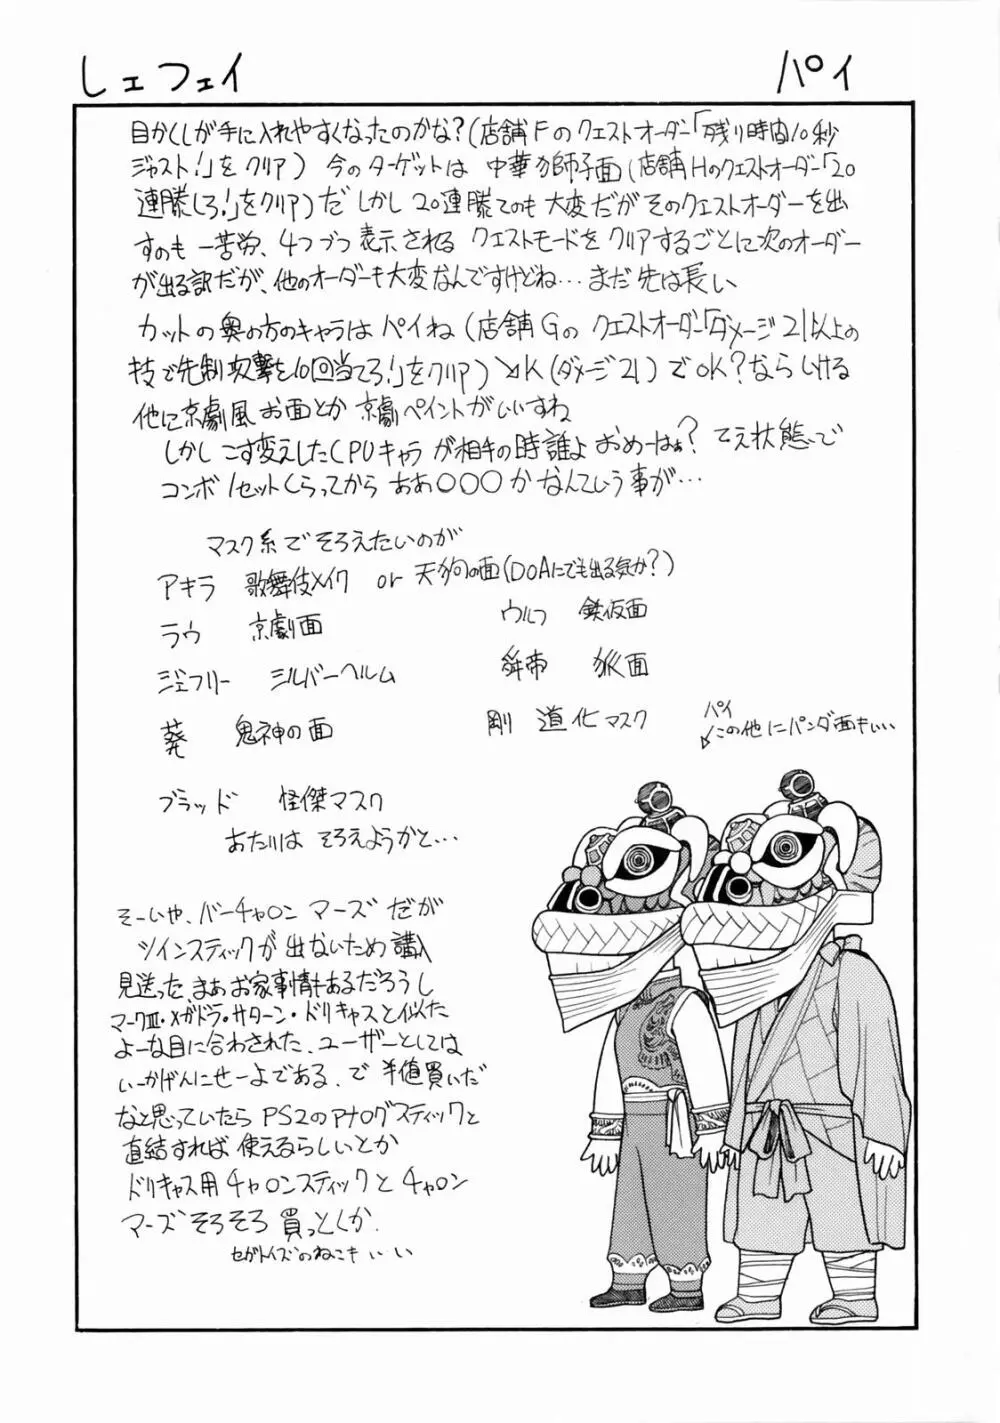 しェフェイ
パイ
目かくしが手に入れやすくなったのかな?(店舗Fのクエストオーダー「残り時間10秒
ジャスト!」をクリア) 今のターゲットは 中華獅子面(店舗Hのクエストオーダー「20
連勝しろ!」をクリア)だ しかし20連勝ての も大変だが そのクエストオーダーを出
すのも 一苦労、4つづつ表示される クエストモードをクリアするごとに次のオーダー
が出る訳だが、他のオーダーも大変なんですけどね…まだ先は長い
カットの奥の方のキャラは パイね (店舗Gの クエストオーダー「ダメージ21以上の
技で先制攻撃を10回当てろ!」をクリア)↘K(ダメージ21)でOK?ならいける
他に京劇風お面とか 京劇ペイントがいいすね
しかし こす変えしたCPUキャラが相手の時誰よ おめーはぁ?てえ状態で
コンボ1セットくらってから ああ○○○かなんていう事が…
マスク系でそろえたいのが
アキラ 歌舞伎メイク or 天狗の面(DOAにでも出る気か?)
ラウ 京劇面
ウルフ 鉄仮面
ジェフリー シルバーヘルム
舜帝 狐面
葵 鬼神の面
剛 道化マスク
パイ
↙この他にパンダ面もいい
ブラッド 怪傑マスク
あたりは そろえようかと…
そーいや、バーチャロン マーズ だが
ツインスティックが出ないため購入
見送った、まぁお家事情もあるだろうし
マークⅢ・メガドラ・サターン・ドリキャスと似た
よーな目に合わされた、ユーザーとしては
いーかげんにせーよである、で 半値買いだ
なと思っていたら PS2のアナログスティックと
直結すれば 使えるらしいとか
ドリキャス用チャロンスティックとチャロン
マーズそろそろ買っとくか.
セガトイズのねこもいい